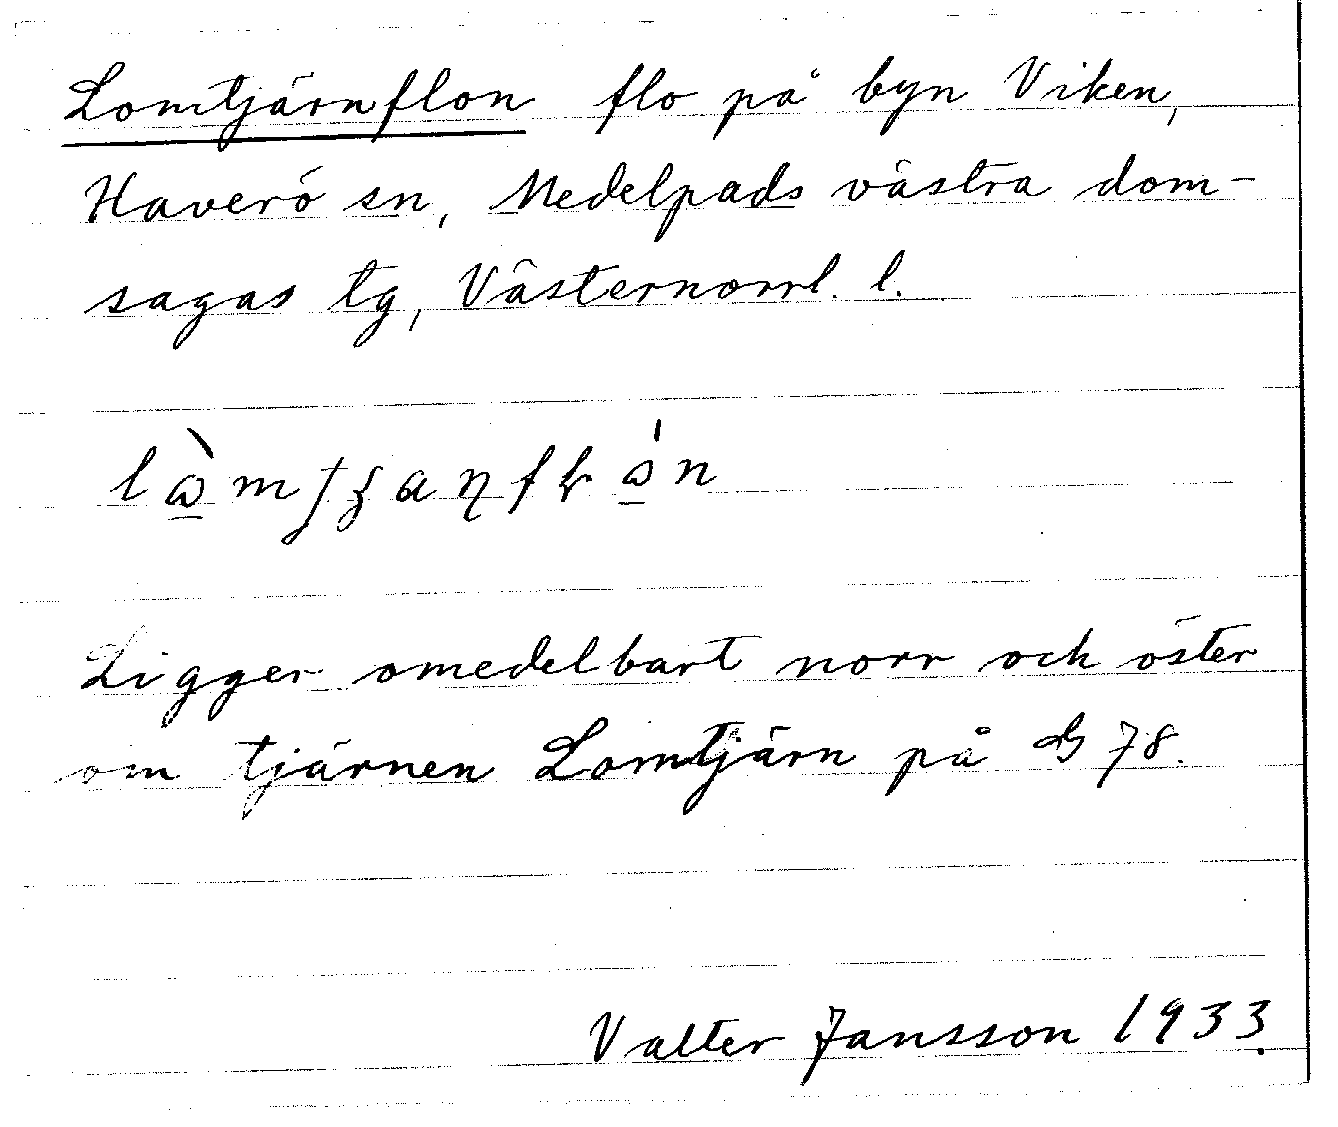 Lomtjärnflon flo på byn Viken,
Haverö sn, Medelpads västra dom-
sagas tg, Västernorrl. l.
Ligger omedelbart norr och öster
om tjärnen Lomtjärn på G 78.
Valter Jansson 1933.